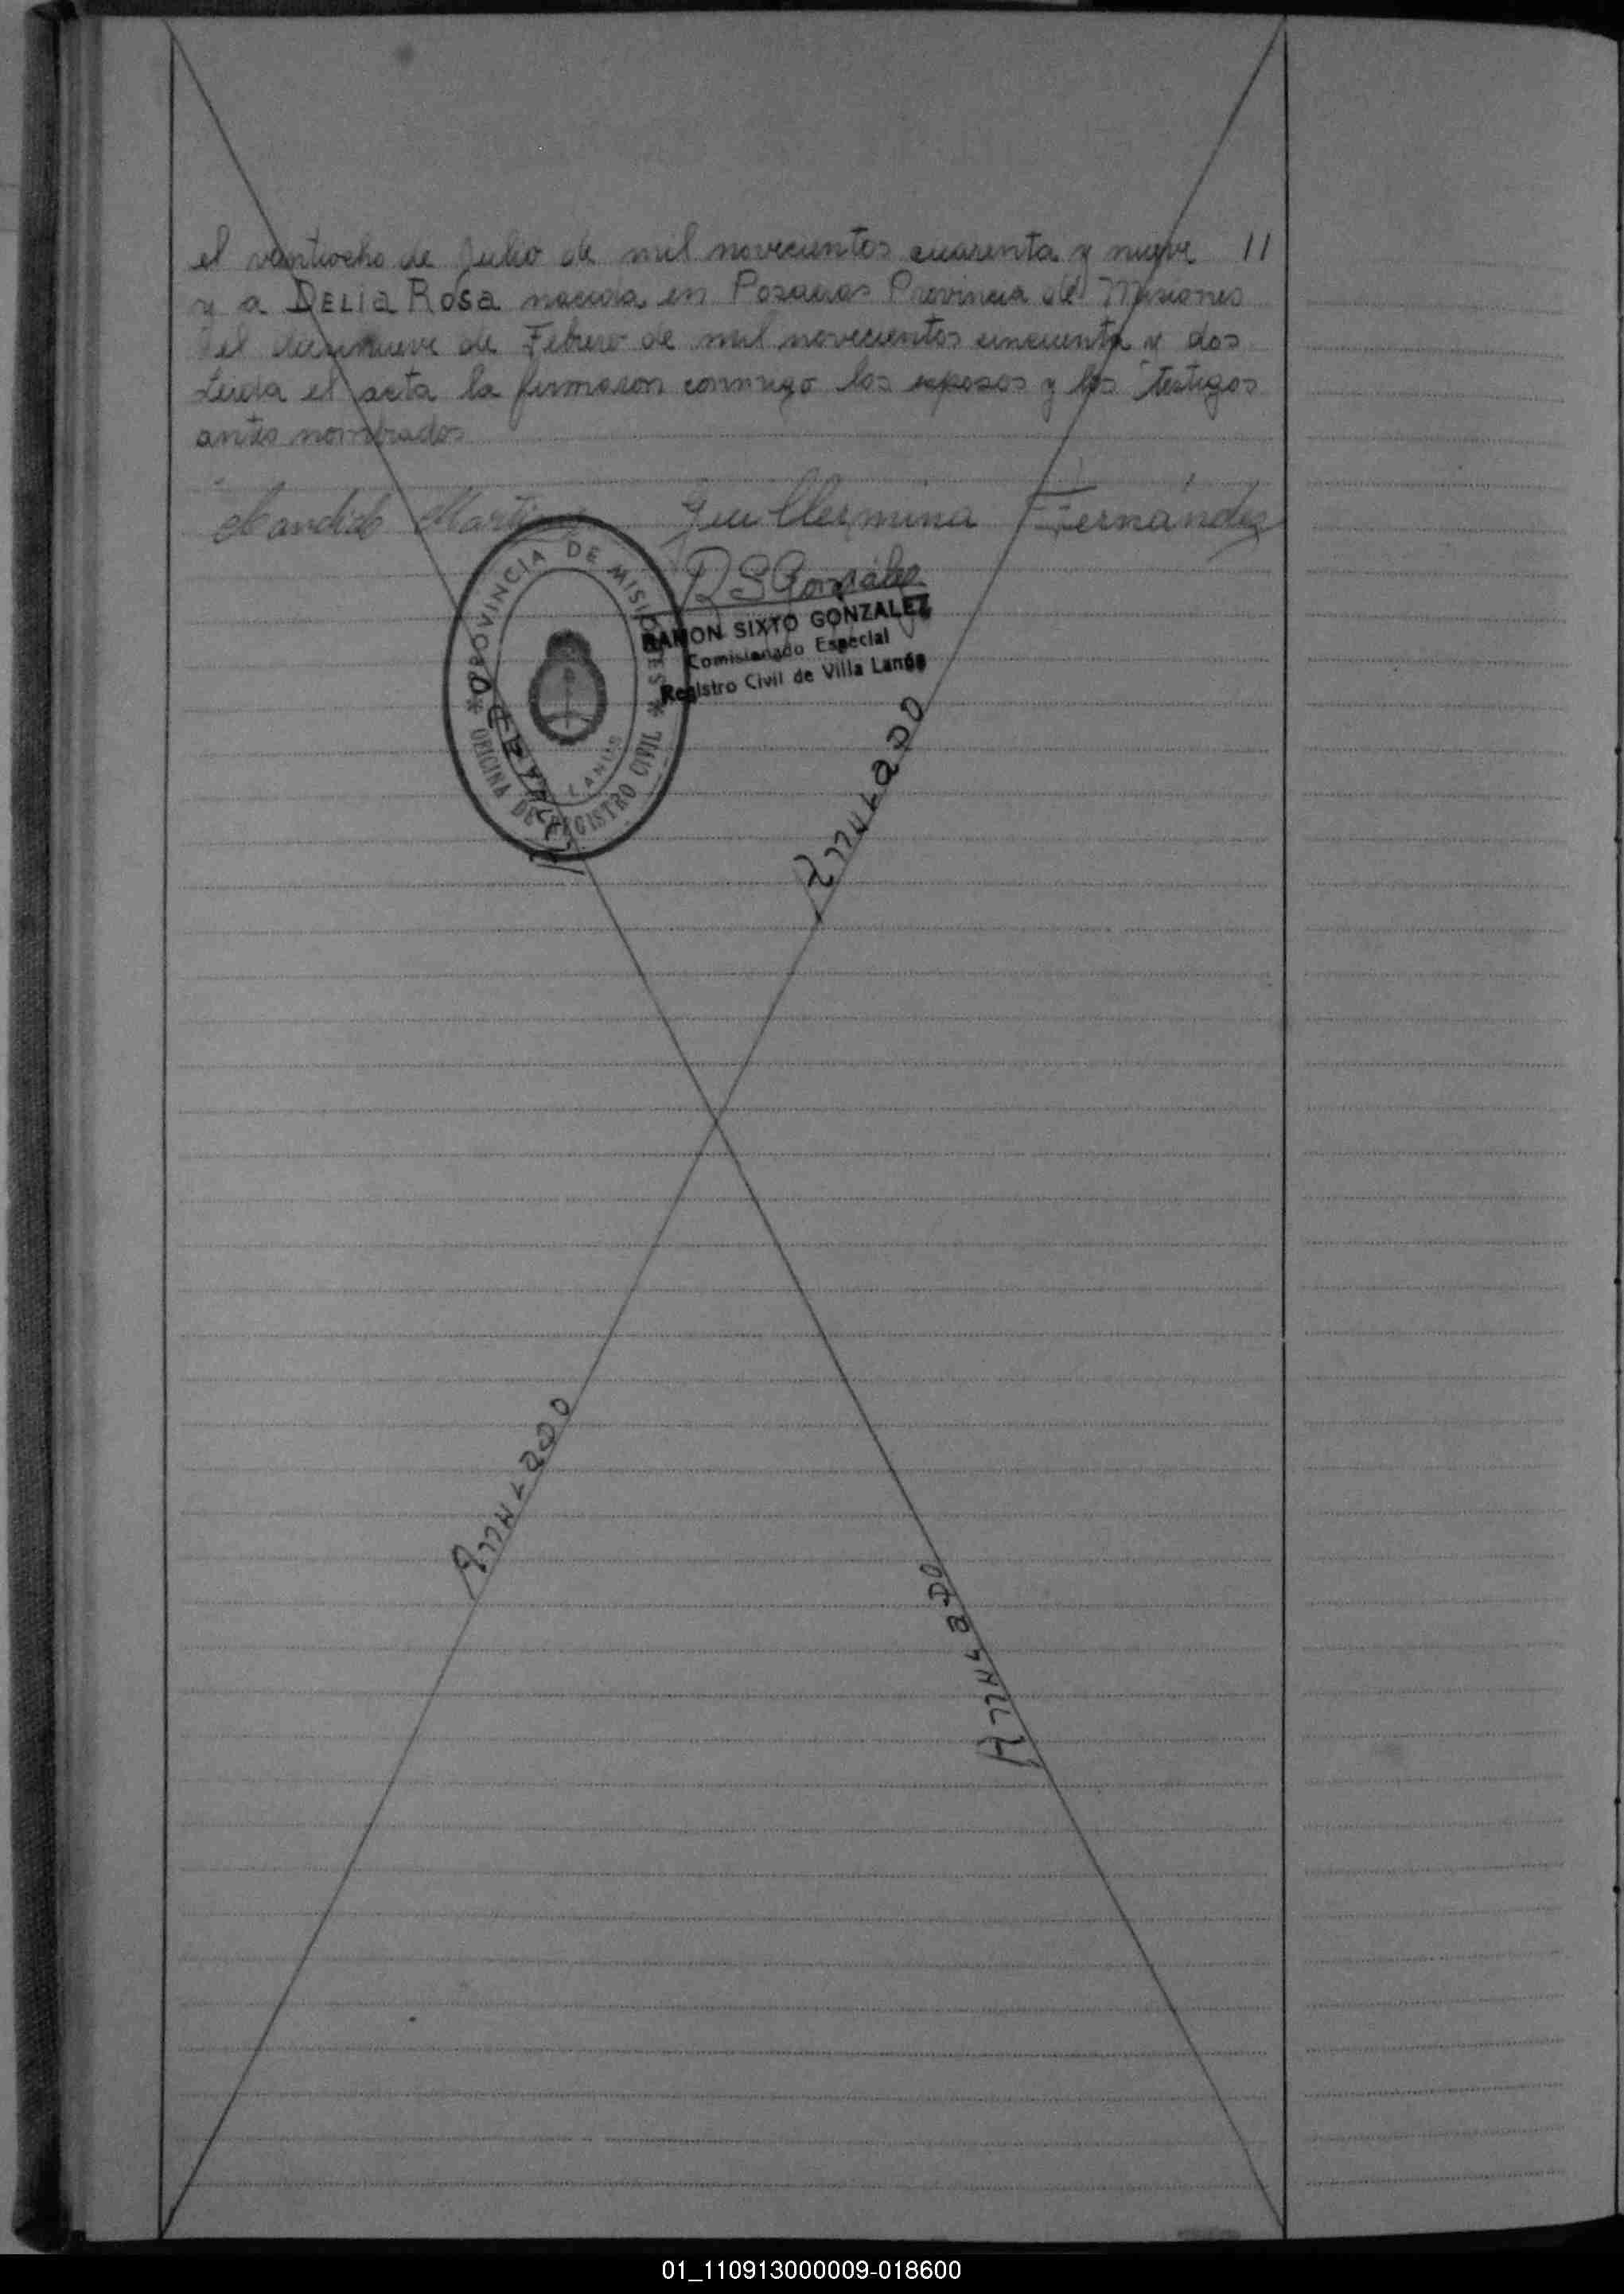 el veintiocho de Julio de mil novecientos cuarenta y nueve 11
y a DELIA ROSA nacida en Posadas Provincia de Misiones
el diecinueve de Febrero de mil novecientos cincuenta y dos
Leida el acta la firmaron conmigo los esposos y los testigos
antes nombrados
Candido Martinez Guillermina Fernández
R S González
RAMON SIXTO GONZALEZ
Comisionado Especial
Registro Civil de Villa Lanús
PROVINCIA DE MISIONES
* OFICINA DE REGISTRO CIVIL *
LANUS
ANULADO
ANULADO
ANULADO
ANULADO
01_110913000009-018600